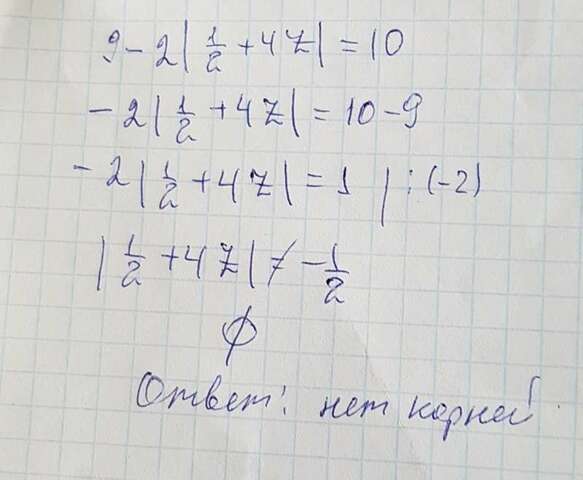 9 - 2|1/2 + 4z| = 10
- 2|1/2 + 4z| = 10 - 9
- 2|1/2 + 4z| = 1 | : (-2)
|1/2 + 4z| ≠ - 1/2
∅
Ответ: нет корней